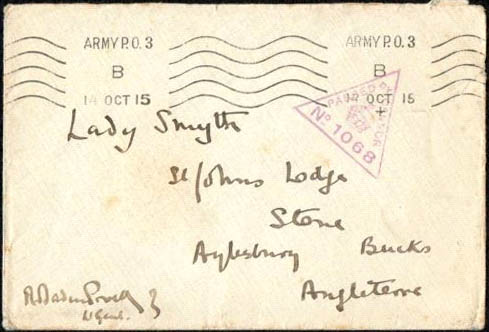 ARMY P.O. 3 ARMY P.O. 3
B B
14 OCT 15 14 OCT 15
PASSED BY CENSOR
No 1068
Lady Smyth
St Johns Lodge
Stone
Aylesbury Bucks
Angleterre
R Baden Powell
Lt Genl.